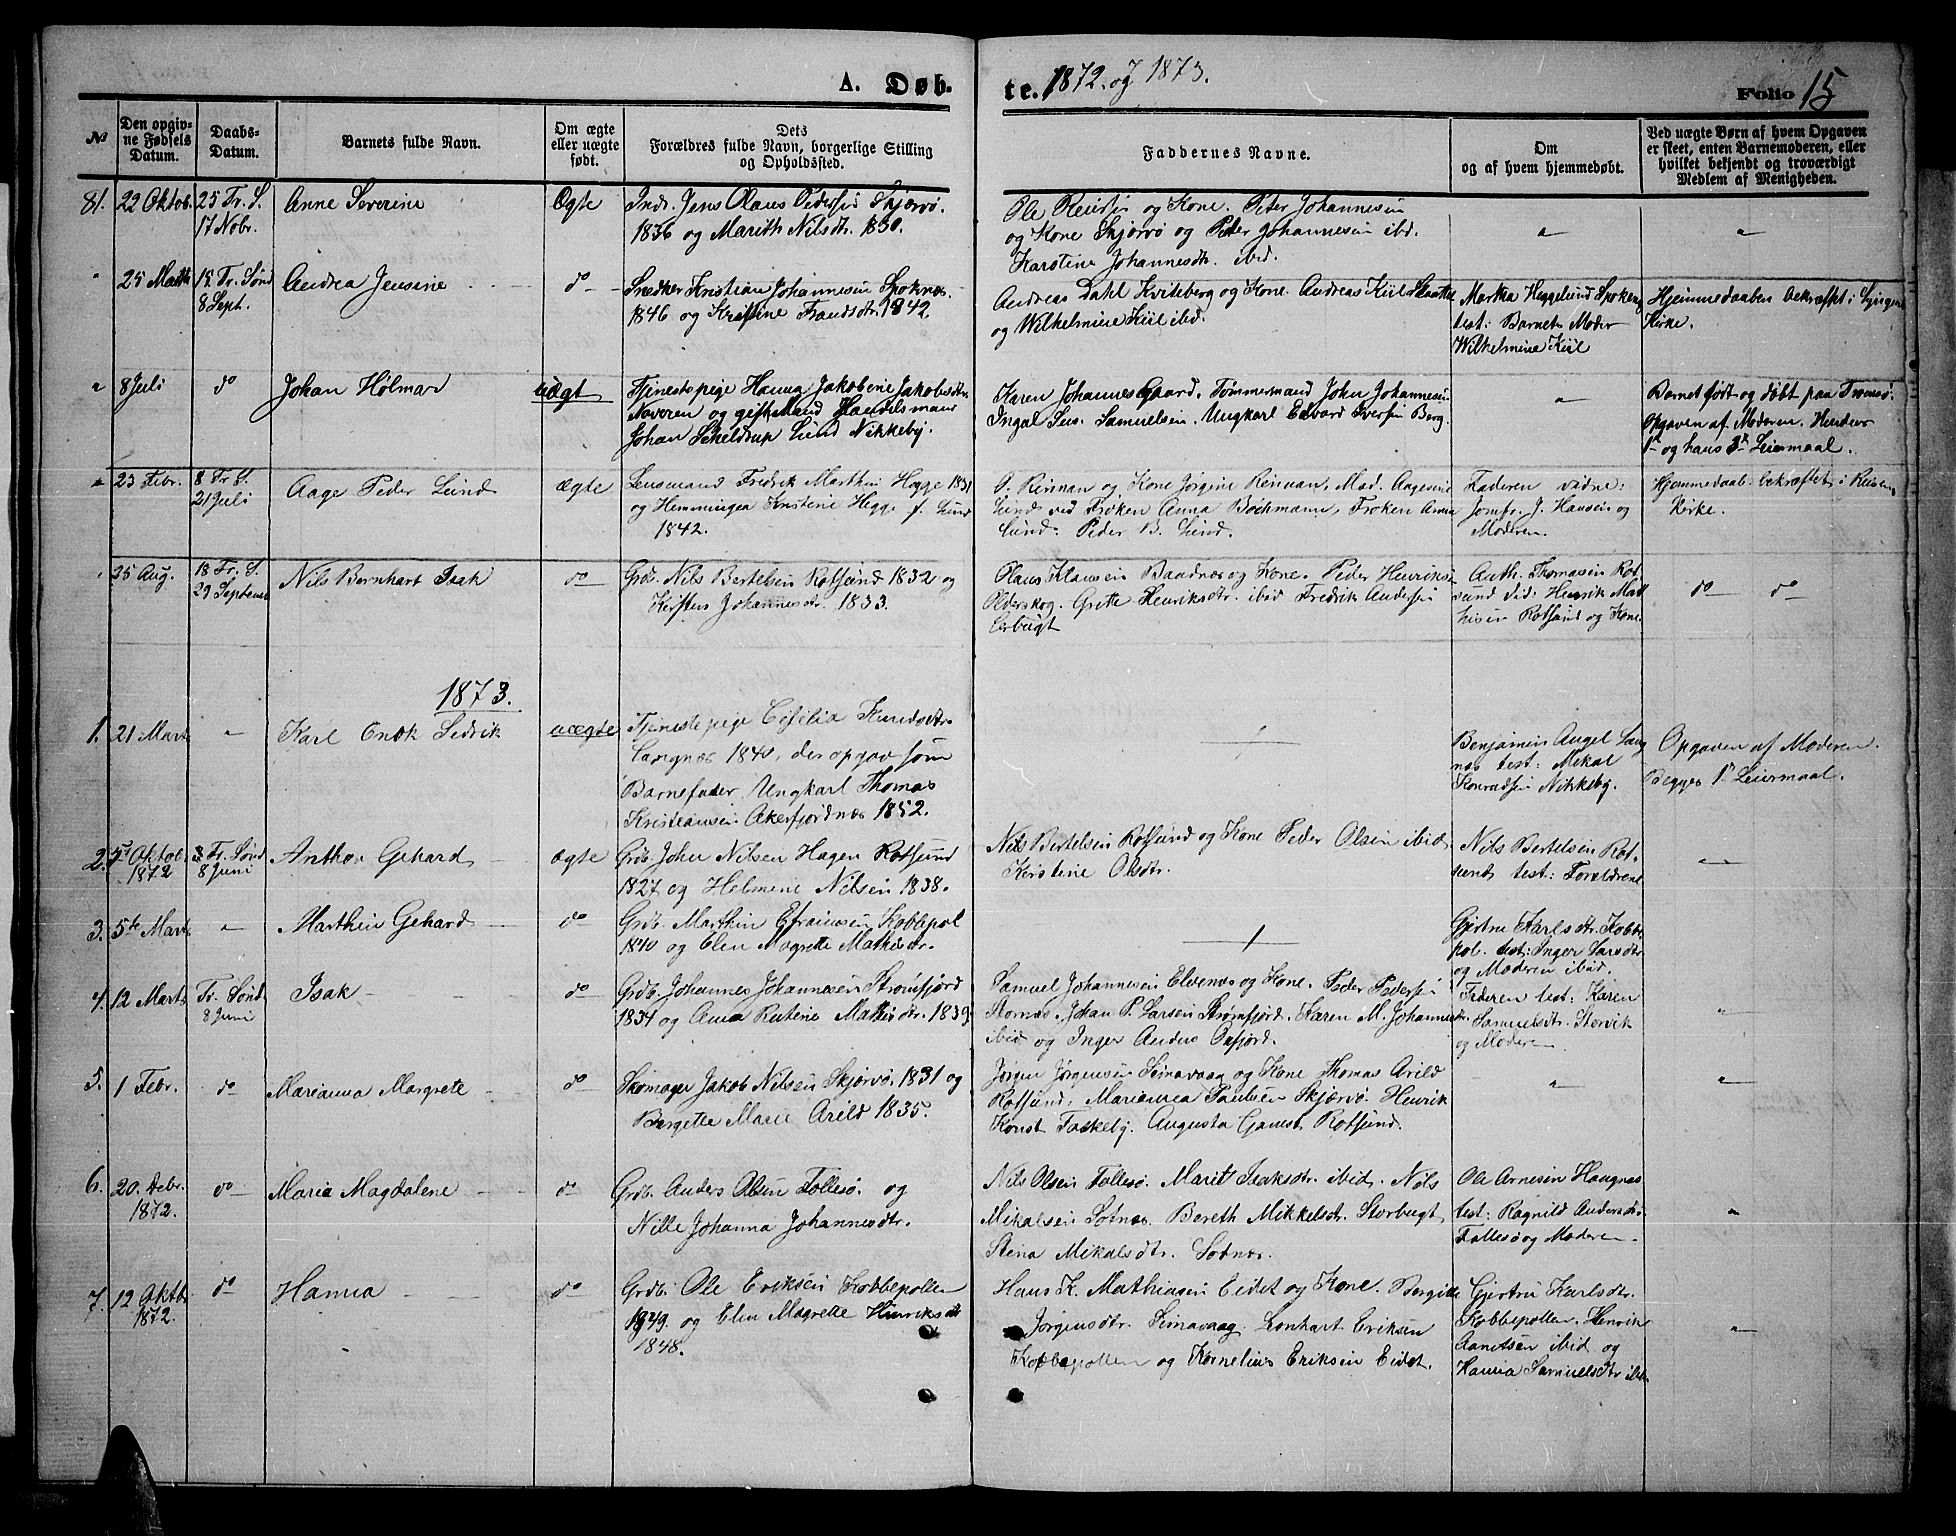 A. Døb-
te. 1872. og 1873.
Folio 15
№
Den opgiv-
ne Fødsels
Datum.
Daabs-
Datum.
Barnets fulde Navn.
Om ægte
eller uægte
født.
Dets
Forældres fulde Navn, borgerlige Stilling
og Opholdssted.
Faddernes Navne.
Om
og af hvem hjemmedøbt.
Ved uægte Børn af hvem Opgaven
er skeet, enten Barnemoderen, eller
hvilket bekjendt og troværdigt
Medlem af Menigheden.
81. 22 Oktob. 25 Tr. S.
17 Nobr.
Anne Severine
Ægte
Indr. Jens Olaus Pedersen Skjærvø.
1836 og Marith Nilsdtr. 1830.
Ole og Kone. Peter Johannesen
og Kone Skjærvø og Peter Johannesen ibd.
Karstine Johannesdtr. ibid.
" 25 Marth 15 Tr. Sønd
8 Sept.
Andrea Jensine
do
Snedker Kristian Johannesen Spoknæs.
1846 og Kristine Frandsdtr. 1842.
Andreas Dahl Kviteberg og Kone. Andreas Kiil
og Wilhelmine Kiil ibd.
Martha Heggelund
test: Barnets Moder
Wilhelmine Kiil
Hjemmedaaben bekræftet i Lyngens
Kirke.
" 8 Juli do
Johan Hølmar
uægt
Tjenestepige Hanna Jakobine Jakobsdtr.
og gift Mand Handelsmand
Johan Scheldrup Lund Nikkeby.
Karen Johannes Gaard. Tømmermand John Johannesen
Samuelsen. Ungkarl Edvard Iversen Berg.
Barnet født og døbt paa Tromsø.
Opgaven af Moderen. Hendes
1te og hans 3de Leiermaal.
" 23 Febr. 8 Tr. S.
21 Juli
Aage Peder Lund
ægte
Lensmand Fredrik Marthin Hegge 1831
og Hemmingea Kristine Hegge f. Lund
1842.
O. Reiman og Kone Jørgine Reiman. Mad. Aagesine
Lund ved Frøken Anna Bochmann, Frøken Anna
Lund. Peder B. Lund.
Faderen vidne:
Jomfr. J. Hansen og
Moderen.
Hjemmedaab bekræftet i Reisens
Kirke.
" 25 Aug. 18 Tr. S.
29 Septembr
Nils Bernhart Isak
do
Grdb. Nils Bertelsen Rotsund 1832 og
Kirsten Johannesdtr. 1833.
Olaus Klausen Baadnæs og Kone. Peder Henriksen
Olderskog. Grette Henriksdtr. ibid Fredrik Andersen
Leerbugt
Anth. Thomasen Rot-
sund vid: Henrik Mat-
hisen Rotsund og Kone.
do do
1873.
1. 21 Marts "
Karl Enok Sedrik
uægte
Tjenestepige Cesilia Knudsdtr.
Langnæs 1840, der opgav som
Barnefader Ungkarl Thomas
Kristiansen Akerfjordnæs 1852.
Benjamin Angel Lang-
næs test: Mikal
Konradsen Nikkeby.
Opgaven af Moderen.
Begges 1te Leiermaal.
2. 5t Oktob. 3 Tr. Sønd
1872 8 Juni
Anthon Gehard
ægte
Grdb. John Nilsen Hagen Rotsund
1827 og Helmine Nilsen 1838.
Nils Bertelsen Rotsund og Kone Peder Olsen ibid.
Kirstine Olsdtr.
Nils Bertelsen Rot-
sund test: Forældrene
"
3. 5te Marts "
Marthin Gehard
do
Grdb. Marthin Efraimsen Kobbepol
1840 og Elen Magrette Mathisdtr.
Gjertru Karlsdtr. Kobbe-
pol. test: Inger Larsdtr.
og Moderen ibid.
4. 12 Marts Tr. Sønd.
8 Juni
Isak
do
Grdb. Johannes Johannesen Strømfjord
1834 og Anna Rutine Mathisdtr. 1839.
Samuel Johannesen Elvenæs og Kone. Peder Pedersen
Stornæs. Johan P. Larsen Strømfjord. Karen M. Johannesdtr.
ibid og Inger Anders Oxfjord.
Federen test: Karen
Samuelsdtr. Storvik
og Moderen
"
5. 1 Febr. do
Marianna Margrete
do
Skomager Jakob Nilsen Skjærvø. 1831 og
Bergette Marie Arild 1835.
Jørgen Jørgensen Simavaag og Kone Thomas Arild
Rotsund. Marianna Paulsen Skjærvø. Henrik
Konst Taskeby. Augusta Gamst Rotsund.
"
"
6. 20. Febr. do
1872.
Maria Magdalene
do
Grdb. Anders Olsen Follesø. og
Nille Johanna Johannesdtr.
Nils Olsen Follesø. Marit Isaksdtr. ibid. Nils
Mikalsen Sotnæs. Bereth Mikkelsdtr. Storbugt
Stina Mikalsdtr. Sotnæs.
Ole Arnesen Haugnæs
test: Ragnild Andersdtr.
Follesø og Moderen
"
7. 12 Oktbr do
1872.
Hanna
do
Grdb. Ole Eriksen Kobbepollen
1849. og Elen Magrette Hinriksdtr
1848.
Hans K. Mathiasen Eidet og Kone. Bergitte
Jørgensdtr. Simavaag. Lenhart Eriksen
Kobbepollen og Kornelius Eriksen Eidet.
Gjertru Karlsdtr.
Kobbepollen. Henrik
ibid og
Hanna Samuelsdtr ibd
"